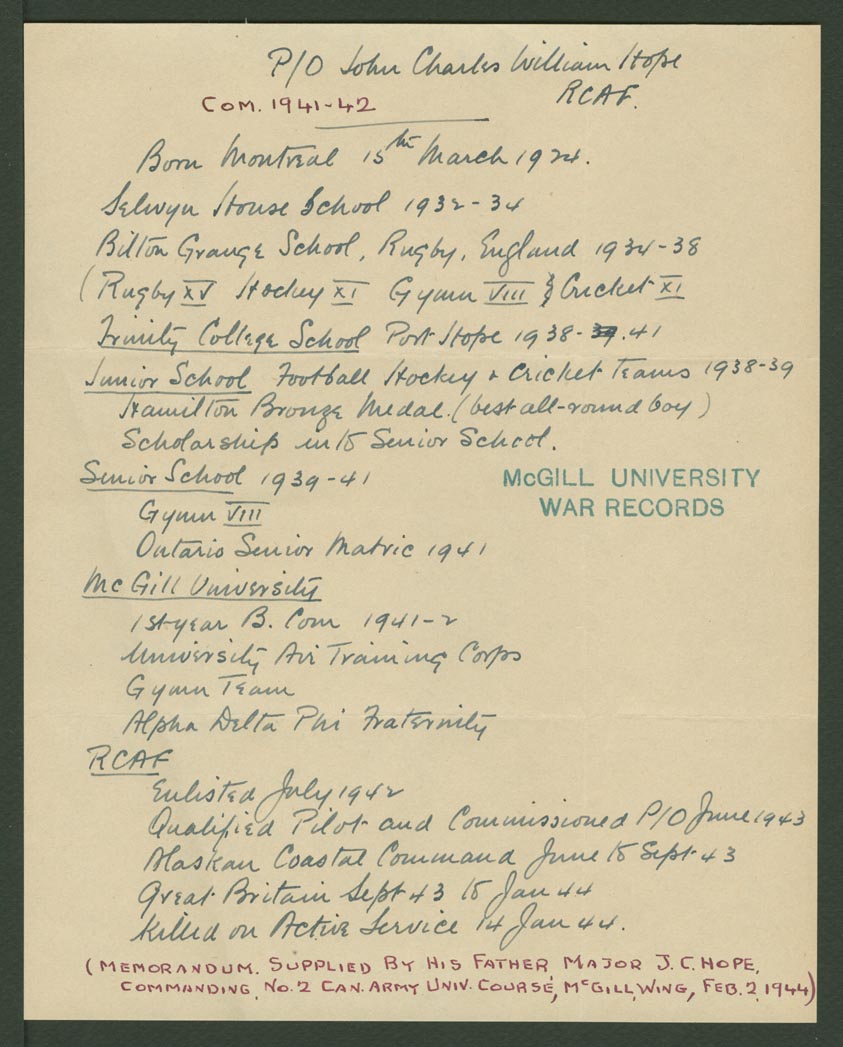 P/O John Charles William Hope
RCAF.
COM. 1941-42
Born Montreal 15th March 1924.
Selwyn House School 1932-34
Bilton Grange School, Rugby, England 1934-38
(Rugby XV Hockey XI Gymn VIII & Cricket XI
Trinity College School Port Hope 1938-39.41
Junior School Football Hockey + Cricket Teams 1938-39
Hamilton Bronze Medal. (best all-round boy)
Scholarship into Senior School.
Senior School 1939-41
McGILL UNIVERSITY
WAR RECORDS
Gymn VIII
Ontario Senior Matric 1941
McGill University
1st year B. Com 1941-2
University Air Training Corps
Gymn Team
Alpha Delta Phi Fraternity
RCAF
Enlisted July 1942
Qualified Pilot and Commissioned P/O June 1943
Alaskan Coastal Command June to Sept 43
Great Britain Sept 43 to Jan 44
Killed on Active Service 14 Jan 44.
(MEMORANDUM. SUPPLIED BY HIS FATHER, MAJOR J.C. HOPE,
COMMANDING, No. 2 CAN. ARMY UNIV. COURSE, McGILL WING, FEB. 2, 1944)